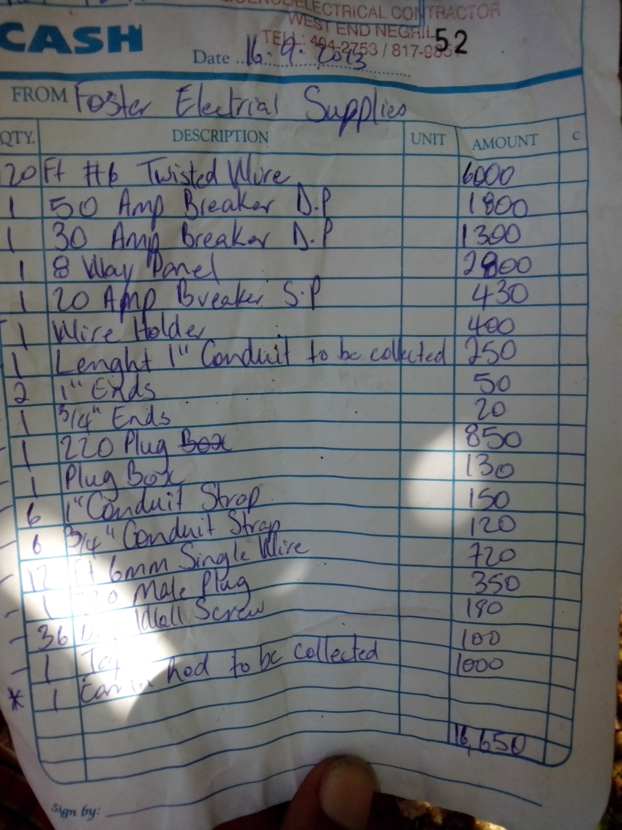 ELECTRICAL CONTRACTOR
WEST END NEGRIL
CASH
52
Date 16. 9. 2013
FROM Foster Electrial Supplies
QTY. DESCRIPTION UNIT AMOUNT C
20 Ft #6 Twisted Wire 6000
1 50 Amp Breaker D.P 1800
1 30 Amp Breaker D.P 1300
1 8 Way Panel 2800
1 20 Amp Breaker S.P 430
1 Wire Holder 400
1 Lenght 1" Conduit to be collected 250
2 1" Ends 50
1 3/4" Ends 20
1 220 Plug Box 850
1 Plug Box 130
6 1" Conduit Strap 150
6 3/4" Conduit Strap 120
12 Ft 6mm Single Wire 720
1 Male Plug 350
36 Wall Screw 180
1 100
* 1 to be collected 1000
16,650
Sign by: